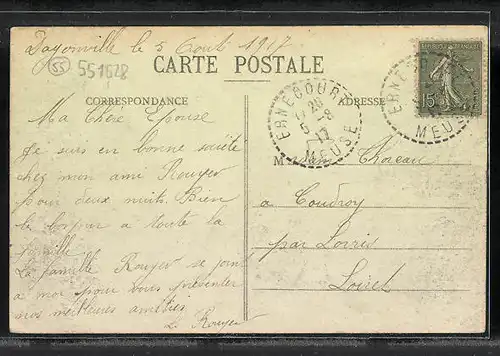 Dagonville le 5 Aout 1917
55
551628
CARTE POSTALE
CORRESPONDANCE
ADRESSE
REPUBLIQUE FRANÇAISE
15
ERNECOURT
5-8
17
MEUSE
ERNECOURT
MEUSE
Ma Chère Epouse
Je suis en bonne société
chez mon ami Rouyer
pour deux nuits. Bien
le bonjour a toute la
famille
La famille Rouyer se joint
a moi pour vous présenter
nos meilleures amitiés
Rouyer
Madame Thoreau
a Coudroy
par Lorris
Loiret